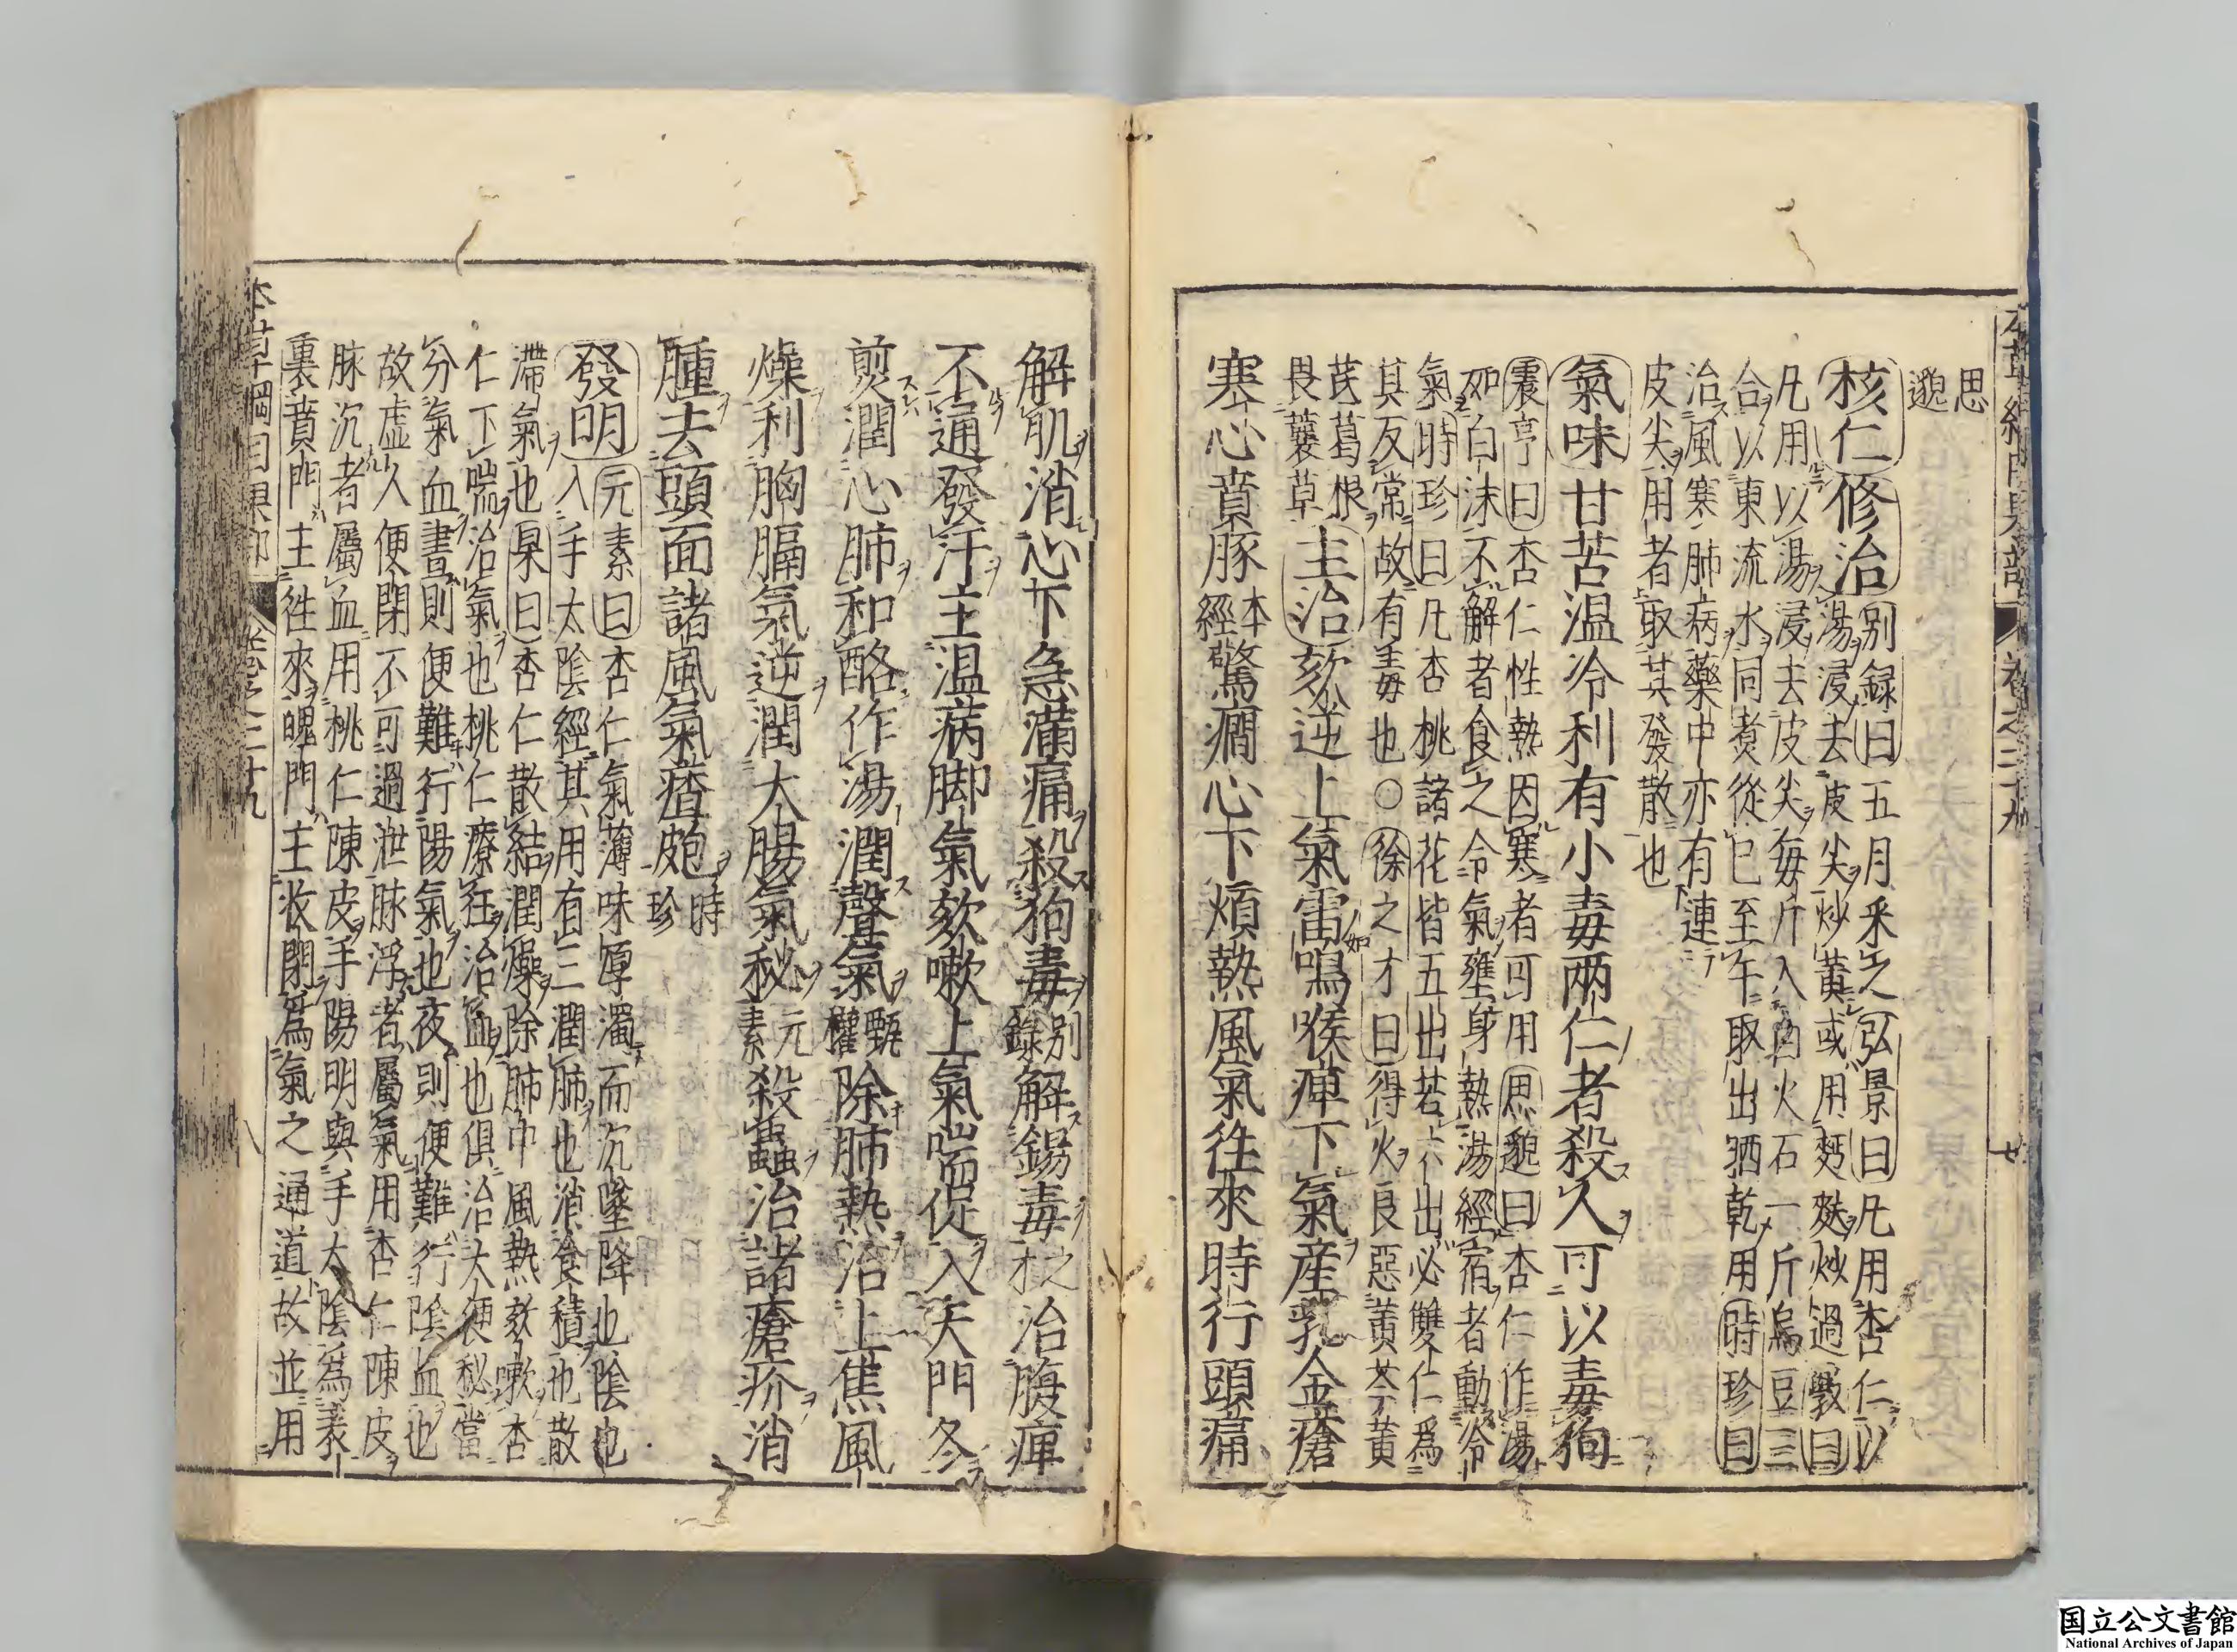 本草綱目果部 卷之二十九 廿
思
邈
核仁修治別録曰五月釆之弘景曰凡用杏仁以
湯浸去皮尖炒黃或用麪麩炒過斅曰
凡用以湯浸去皮尖每斤入白火石一斤烏豆三
合以東流水同煮從巳至午取出晒乾用時珍曰
治風寒肺病藥中亦有連
皮尖用者取其發散也
氣味甘苦温冷利有小毒兩仁者殺人可以毒狗
震亨曰杏仁性熱因寒者可用思邈曰杏仁作湯
如白沫不解者食之令氣壅身熱湯經宿者動冷
氣時珍曰凡杏桃諸花皆五出若六出必雙仁爲
其反常故有毒也○徐之才曰得火良惡黃芩黃
芪葛根
畏蘘草
主治欬逆上氣雷鳴喉痺下氣産乳金瘡
寒心賁豚本經驚癎心下煩熱風氣徃來時行頭痛
解肌消心下急滿痛殺狗毒別録解錫毒之才治腹痺
不通發汗主温病脚氣欬嗽上氣喘促入天門冬
煎潤心肺和酪作湯潤聲氣甄權除肺熱治上焦風
燥利胸膈氣逆潤大腸氣秘元素殺蟲治諸瘡疥消
腫去頭面諸風氣㾴皰時珍
發明元素曰杏仁氣薄味厚濁而沉墜降也陰也
入手太陰經其用有三潤肺也消食積也散
滯氣也杲曰杏仁散結潤燥除肺中風熱欬嗽杏
仁下喘治氣也桃仁療狂治血也俱治大便秘當
分氣血晝則便難行陽氣也夜則便難行陰血也
故虚人便閉不可過泄脉浮者屬氣用杏仁陳皮
脉沉者屬血用桃仁陳皮手陽明與手太陰爲表
裏賁門主徃來魄門主收閉爲氣之通道故並用
本草綱目果部 卷之二十九
国立公文書館
National Archives of Japan